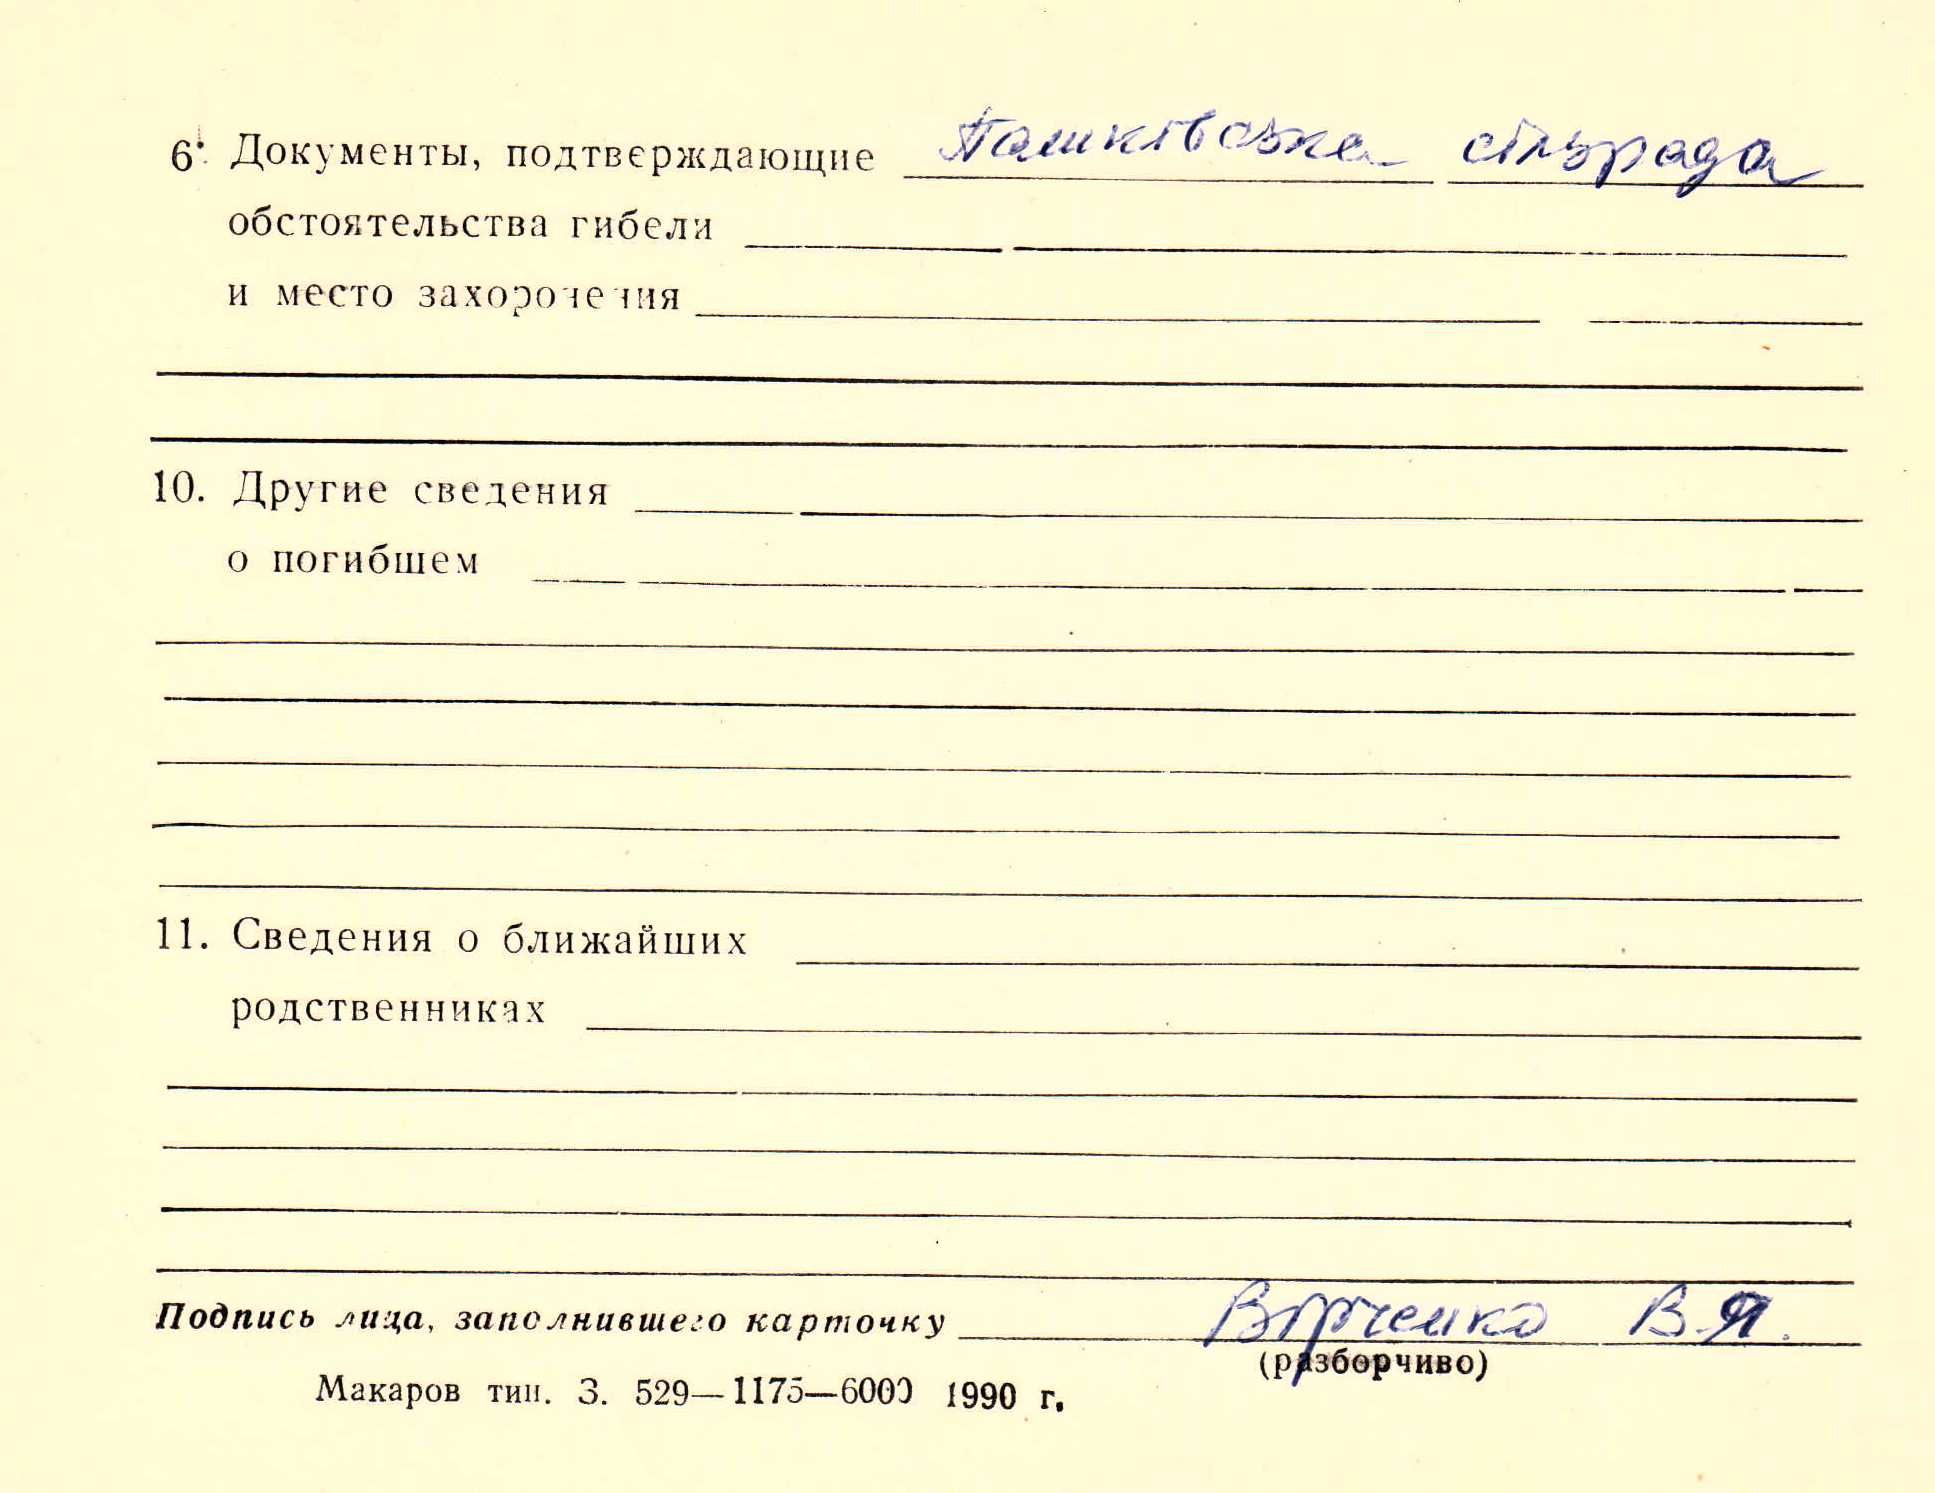 6. Документы, подтверждающие Пашківська сільрада
обстоятельства гибели
и место захоронения
10. Другие сведения
о погибшем
11. Сведения о ближайших
родственниках
Подпись лица, заполнившего карточку В.Я.
(разборчиво)
Макаров тип. З. 529—1175—6000 1990 г.